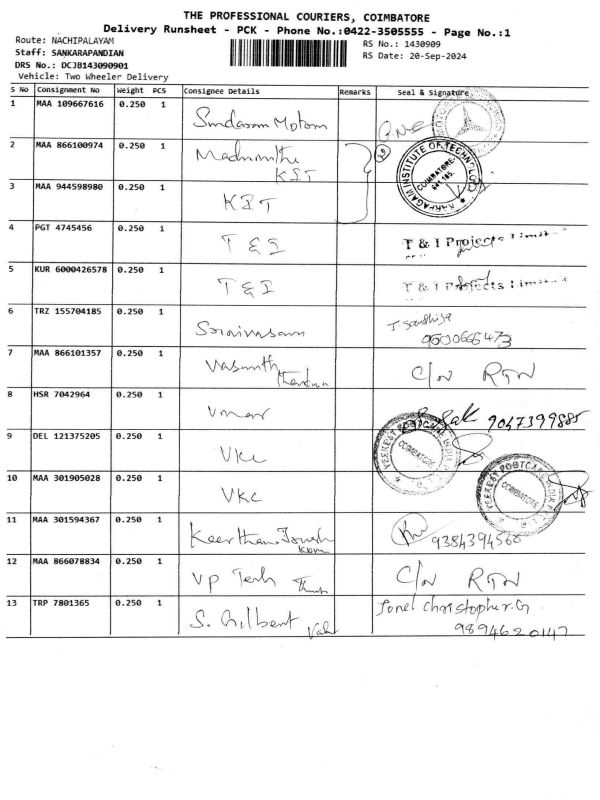 THE PROFESSIONAL COURIERS, COIMBATORE
Delivery Runsheet - PCK - Phone No.:0422-3505555 - Page No.:1
Route: NACHIPALAYAM
RS No.: 1430909
Staff: SANKARAPANDIAN
RS Date: 20-Sep-2024
DRS No.: DCJB143090901
Vehicle: Two Wheeler Delivery
S No Consignment No Weight PCS Consignee Details Remarks Seal & Signature
1 MAA 109667616 0.250 1 Sundaram Motors
2 MAA 866100974 0.250 1 KIT
KARPAGAM INSTITUTE OF TECHNOLOGY
COIMBATORE-
641 105.
3 MAA 944598980 0.250 1 KIT
4 PGT 4745456 0.250 1 T & I T & I Projects Limited
5 KUR 6000426578 0.250 1 T & I T & I Projects Limited
6 TRZ 155704185 0.250 1 Srinivasan
7 MAA 866101357 0.250 1 Vasanth C/N RTN
8 HSR 7042964 0.250 1 Umar 9047399885
9 DEL 121375205 0.250 1 VKC
COIMBATORE
10 MAA 301905028 0.250 1 VKC
COIMBATORE
11 MAA 301594367 0.250 1 9384394568
12 MAA 866078834 0.250 1 VP Tech C/N RTN
13 TRP 7801365 0.250 1 S. Gilbert Christopher.G
9894620147